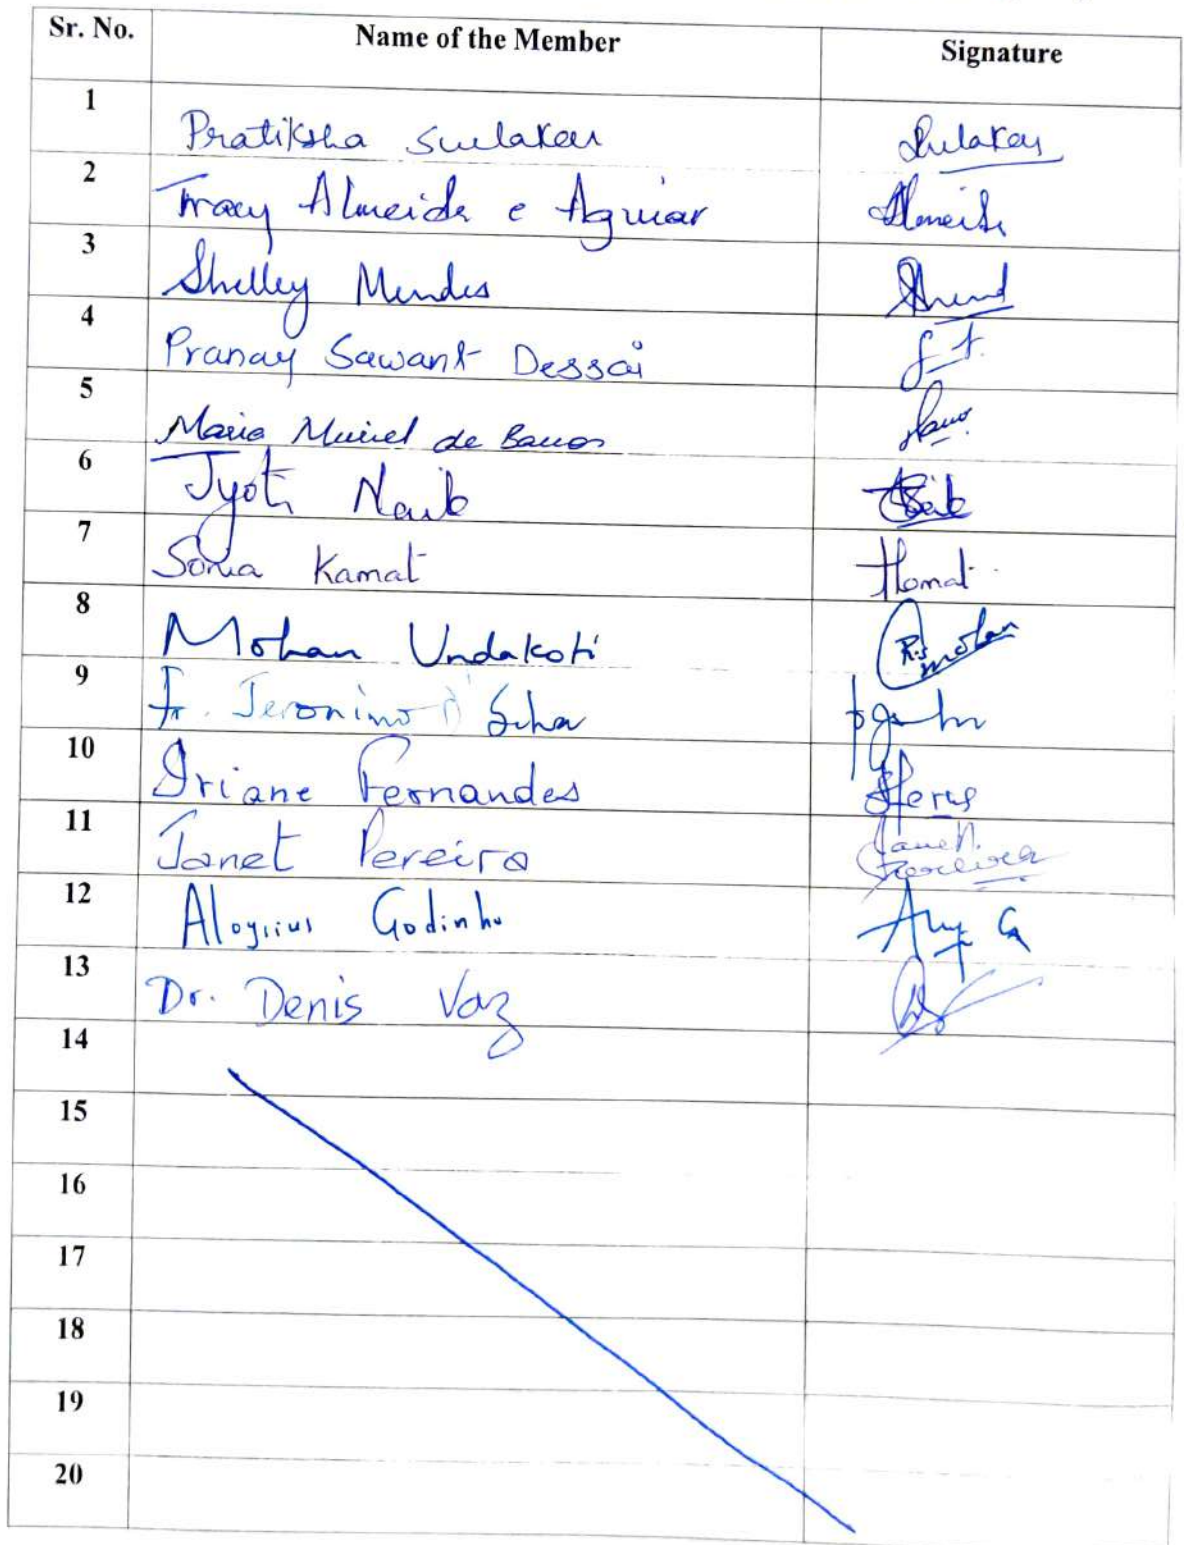 Sr. No. Name of the Member Signature
1 Pratiksha Surlakar Surlakar
2 Tracy Almeida e Aguiar Almeida
3 Shelley Mendes
4 Pranay Sawant Dessai
5 Maria Muriel de Barros
6 Jyoti Naik Naik
7 Sonia Kamat Kamat
8 Mohan Undakoti Mohan
9 Fr. Jeronimo D'Silva
10 Iriane Fernandes
11 Janet Pereira Janet Pereira
12 Aloysius Godinho
13 Dr. Denis Vaz
14
15
16
17
18
19
20